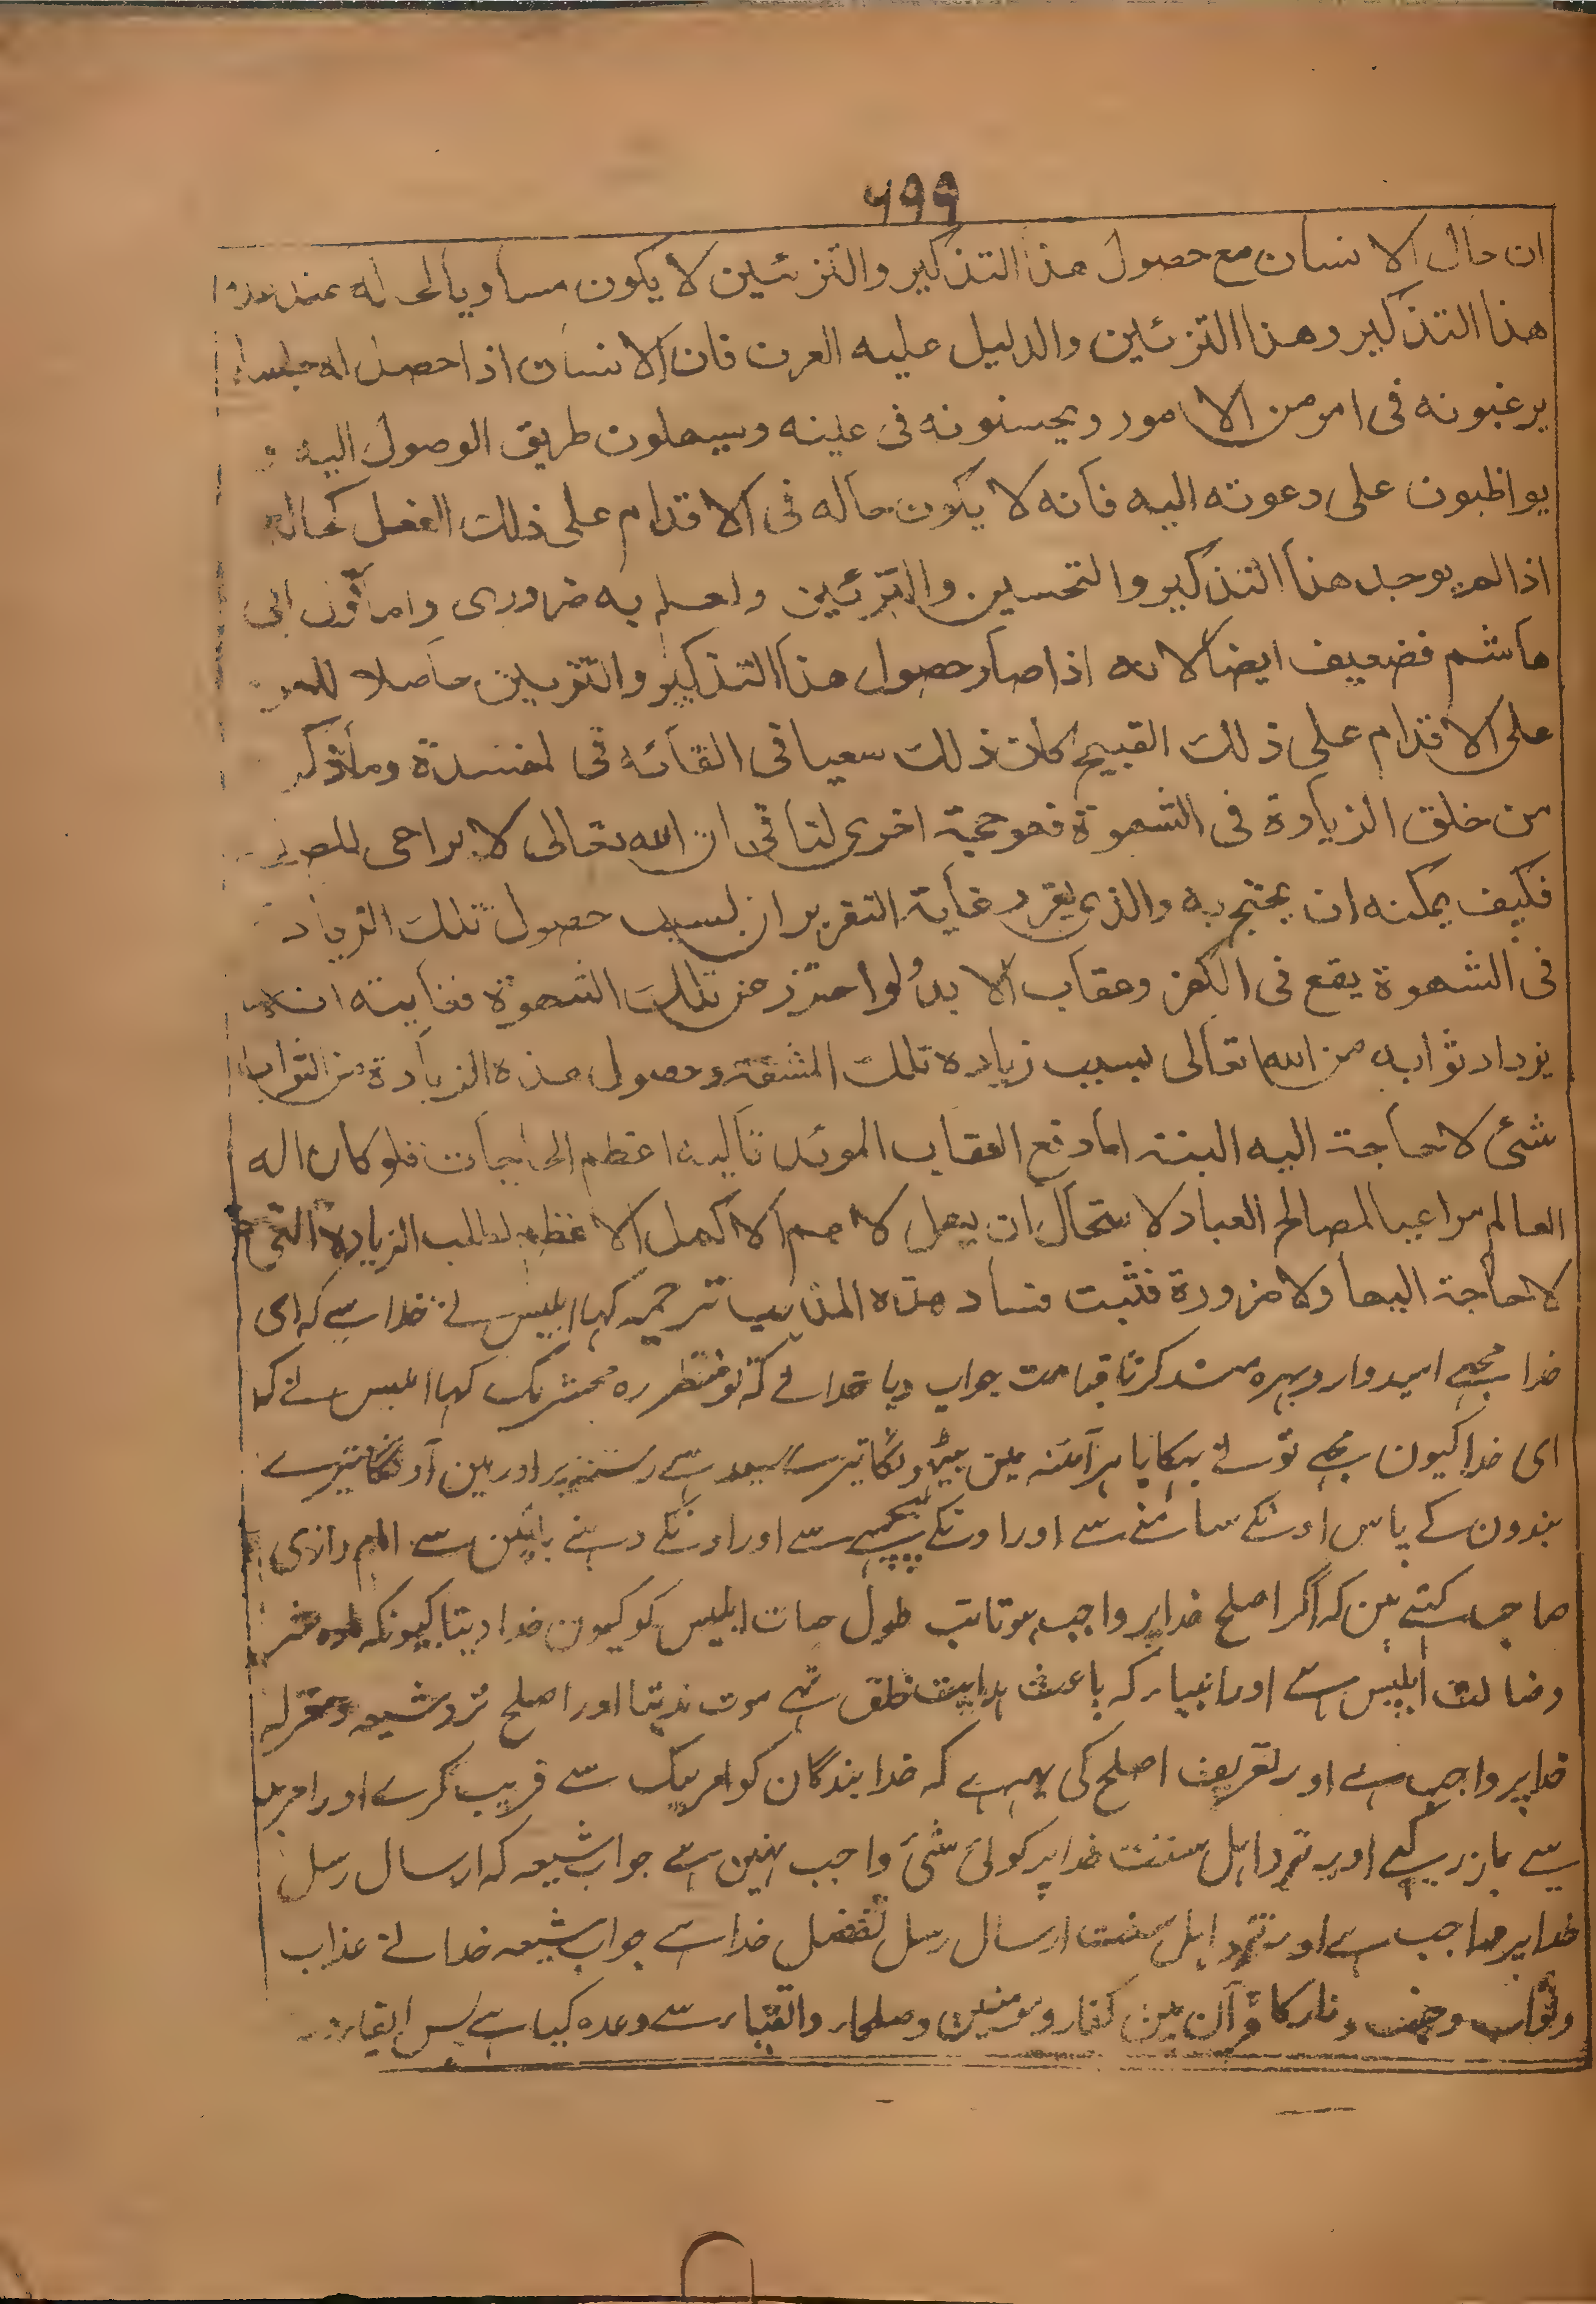 ۶۹۹
ان حال الانسان مع حصول هذا التذكير والتزئين لا يكون مساويا لحاله عند عدم
هذا التذكير وهذا التزئين والدليل عليه العرف فان الانسان اذا حصل له جلساء
يرغبونه فى امر من الامور ويحسنونه فى عينه ويسهلون طريق الوصول اليه
يواظبون على دعوته اليه فانه لا يكون حاله فى الاقدام على ذلك الفعل كحاله
اذا لم يوجد هذا التذكير والتحسين والتزئين والعلم به ضرورى واما قول ابى
هاشم فضعيف ايضا لانه اذا صار حصول هذا التذكير والتزيين حاصلا للمرء
على الاقدام على ذلك القبيح كان ذلك سعيا فى القائه فى لمفسدة وما ذكر
من خلق الزيادة فى الشهوة فهو حجة اخرى لنا فى ان الله تعالى لا يراعى المصلحة
فكيف يمكنه ان يحتج به والذى يقرره غاية التقرير ان لسبب حصول تلك الزيادة
فى الشهوة يقع فى الكفر وعقاب الابد ولو احترز عن تلك الشهوة فغايته انه
يزداد ثوابه من الله تعالى بسبب زيادة تلك المشقة وحصول هذه الزيادة من الثواب
شئ لا حاجة اليه البتة اما دفع العقاب الموئد فاليه اعظم الحاجات فلو كان اله
العالم مراعيا لمصالح العباد لا ستحال ان يهمل الاهم الاكمل الاعظم لطلب الزيادة التى
لا حاجة اليها ولا ضرورة فثبت فساد هذه المذاهب ترجمہ کہا ابلیس نے خدا سے کہ ای
خدا مجھے امیدوار وبہرہ مند کر تا قیامت جواب دیا خدا نے کہ تو منتظر رہ محشر تک کہا ابلیس نے کہ
ای خدا کیون مجھے تو نے بہکایا ہر آئنہ مین بیٹھونگا تیرے سیدھے رستہ پر اور مین آونگا تیرے
بندون کے پاس اونکے سامنے سے اور اونکے پیچھے سے اور اونکے دہنے بائین سے امام رازی
صاحب کہتے ہین کہ اگر اصلح خدا پر واجب ہوتا تب طول حیات ابلیس کو کیون خدا دیتا کیونکہ مادہ شر
وضالت ابلیس ہے اور انبیاء کہ باعث ہدایت خلق تھے موت ندیتا اور اصلح نزد شیعہ ومعتزلہ
خدا پر واجب ہے اور تعریف اصلح کی یہہ ہے کہ خدا بندگان کو امر نیک سے قریب کرے اور امر بد
سے باز رکھے اور نزد اہل سنت خدا پر کوئی شئ واجب نہین ہے جواب شیعہ کہ ارسال رسل
خدا پر واجب ہے اور نزد اہل سنت ارسال رسل تفضل خدا ہے جواب شیعہ خدا نے عذاب
وثواب وجنت ونار کا قرآن مین کفار ومومنین وصلحاء واتقیاء سے وعدہ کیا ہے پس ایفاء